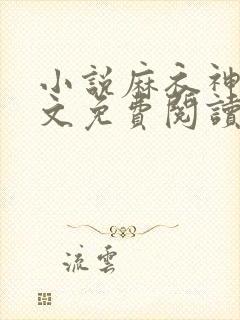 小説麻衣神
文免費閱讀
流雲